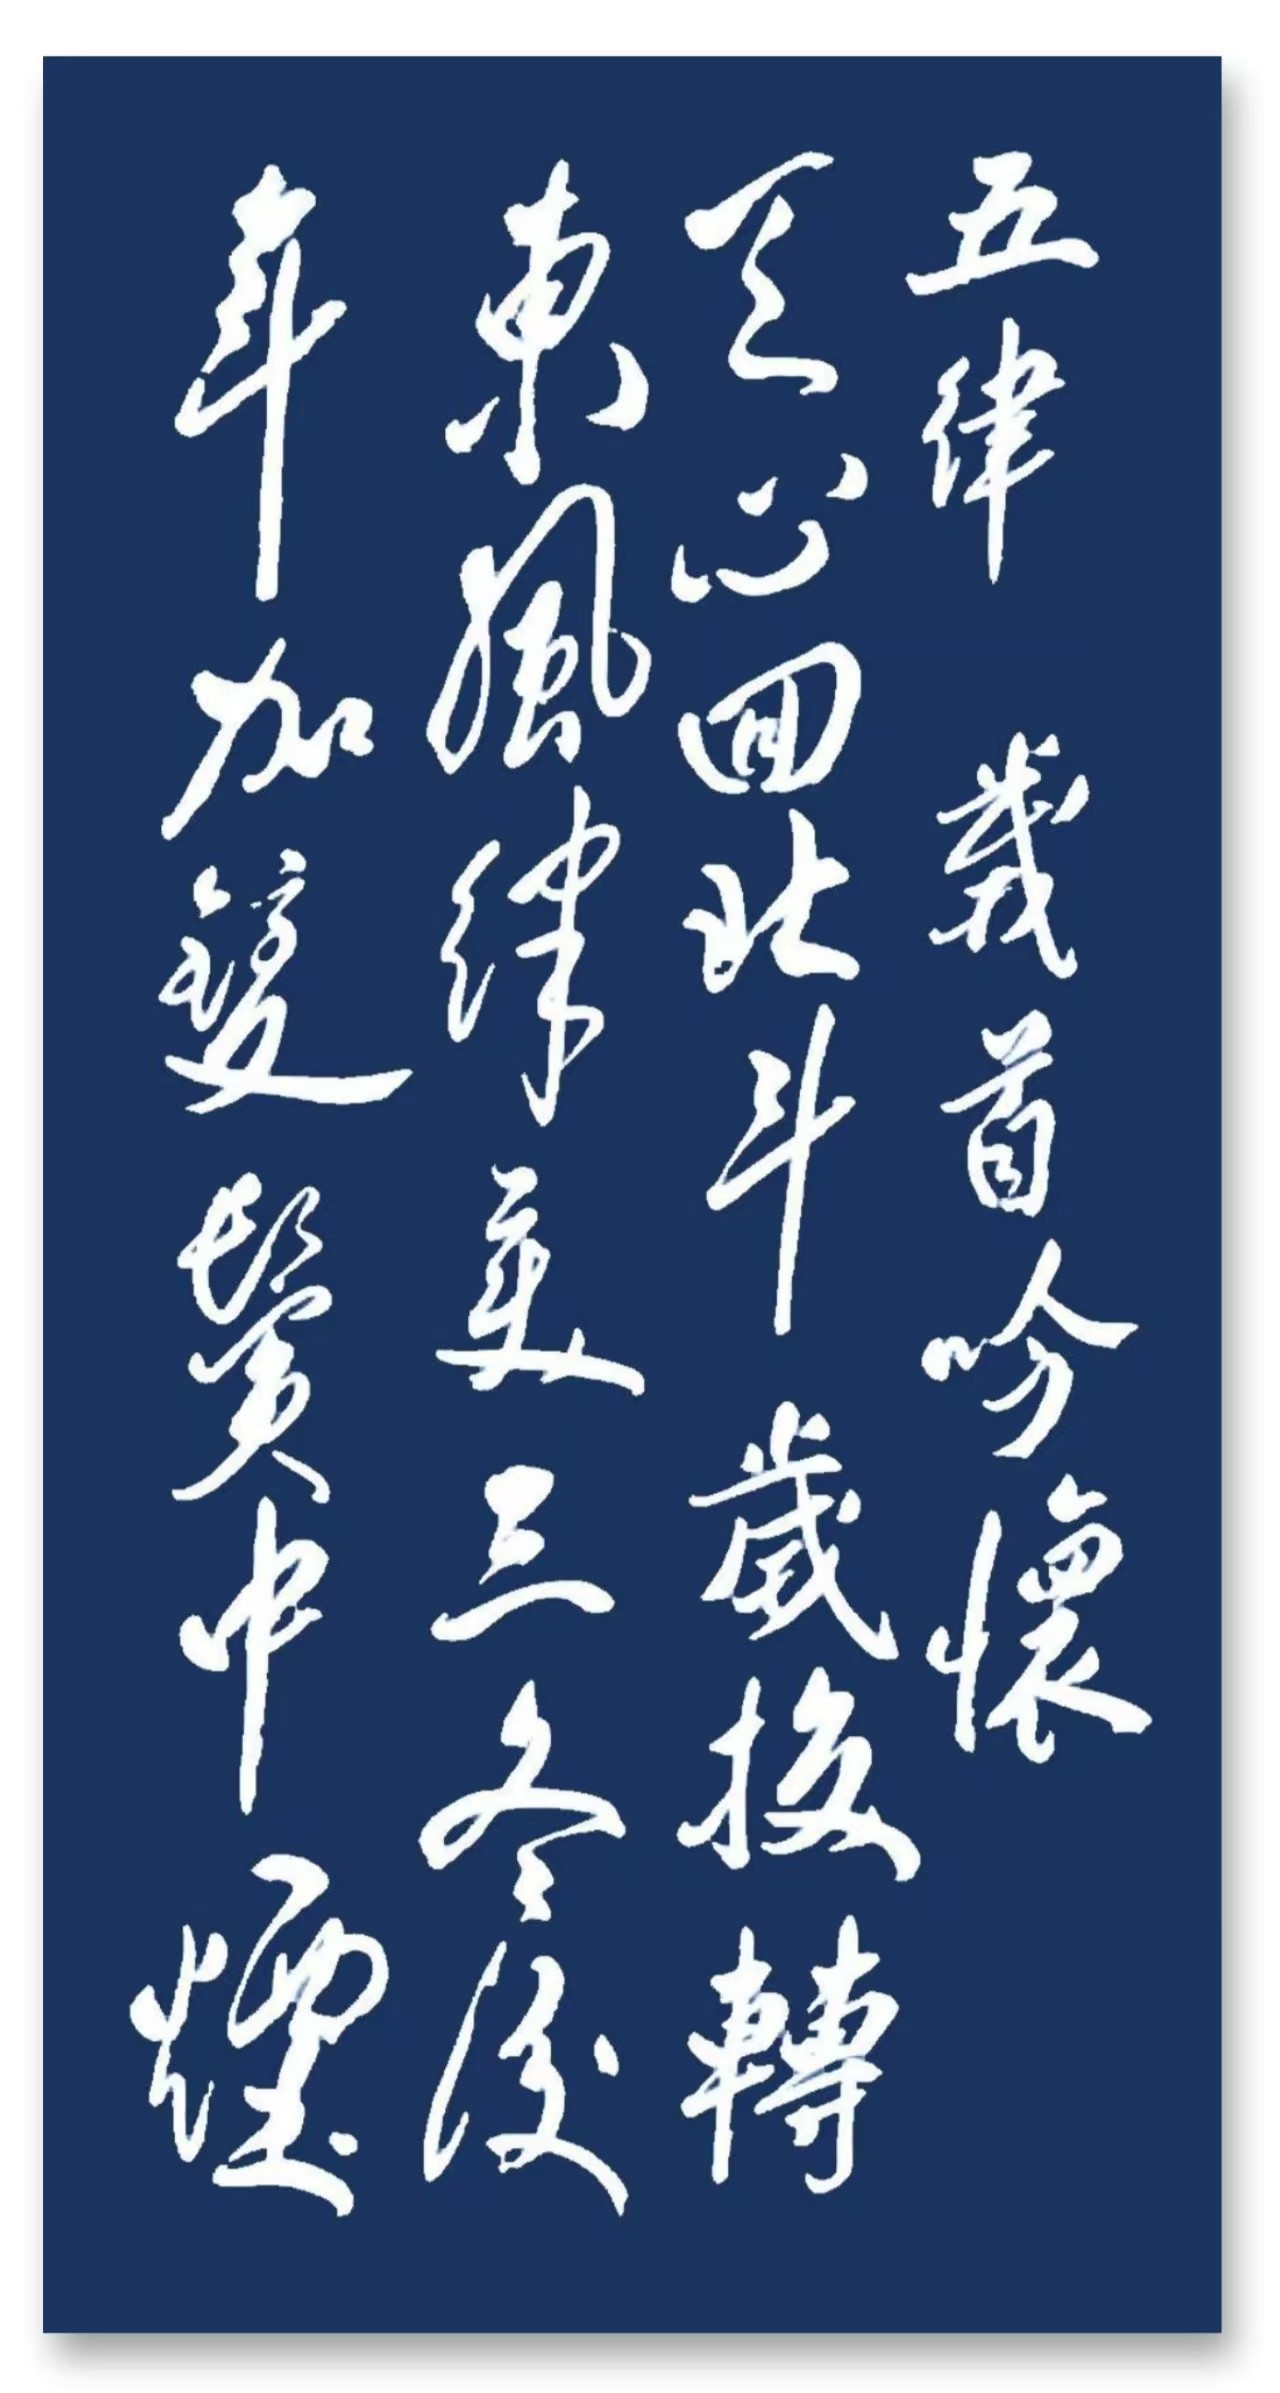 五律 歲首吟懷
天心回北斗歲換轉
東風律美三冬後
年加雙鬢中煙